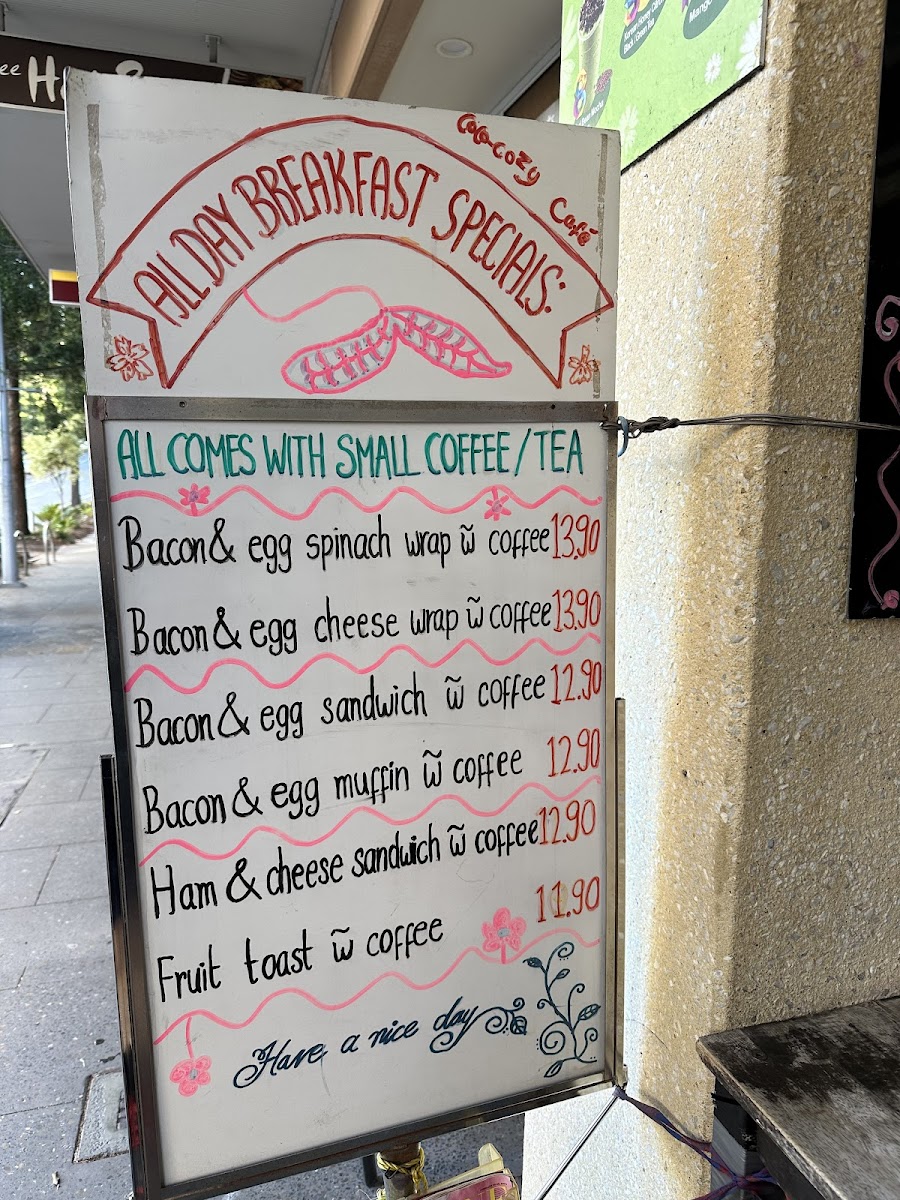 CoCo-Cozy
Café
ALL DAY BREAKFAST SPECIALS:
ALL COMES WITH SMALL COFFEE/TEA
Bacon & egg spinach wrap w̃ coffee 13.90
Bacon & egg cheese wrap w̃ coffee 13.90
Bacon & egg sandwich w̃ coffee 12.90
Bacon & egg muffin w̃ coffee 12.90
Ham & cheese sandwich w̃ coffee 12.90
Fruit toast w̃ coffee 11.90
Have a nice day